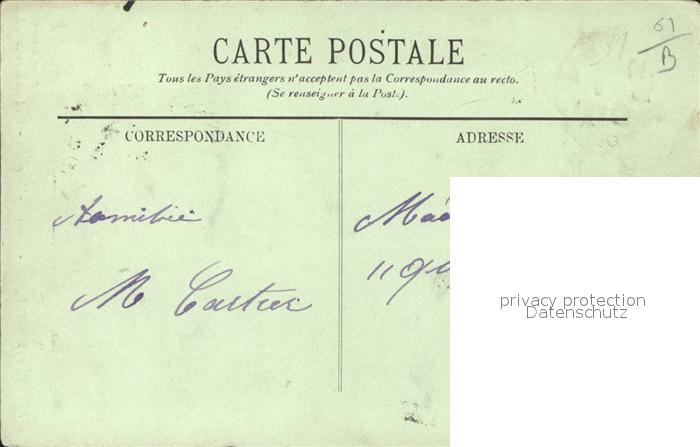 CARTE POSTALE
Tous les Pays étrangers n'acceptent pas la Correspondance au recto.
(Se renseigner à la Poste).
CORRESPONDANCE
ADRESSE
61
B
Mad
11 qu
M Cartier
privacy protection
Datenschutz